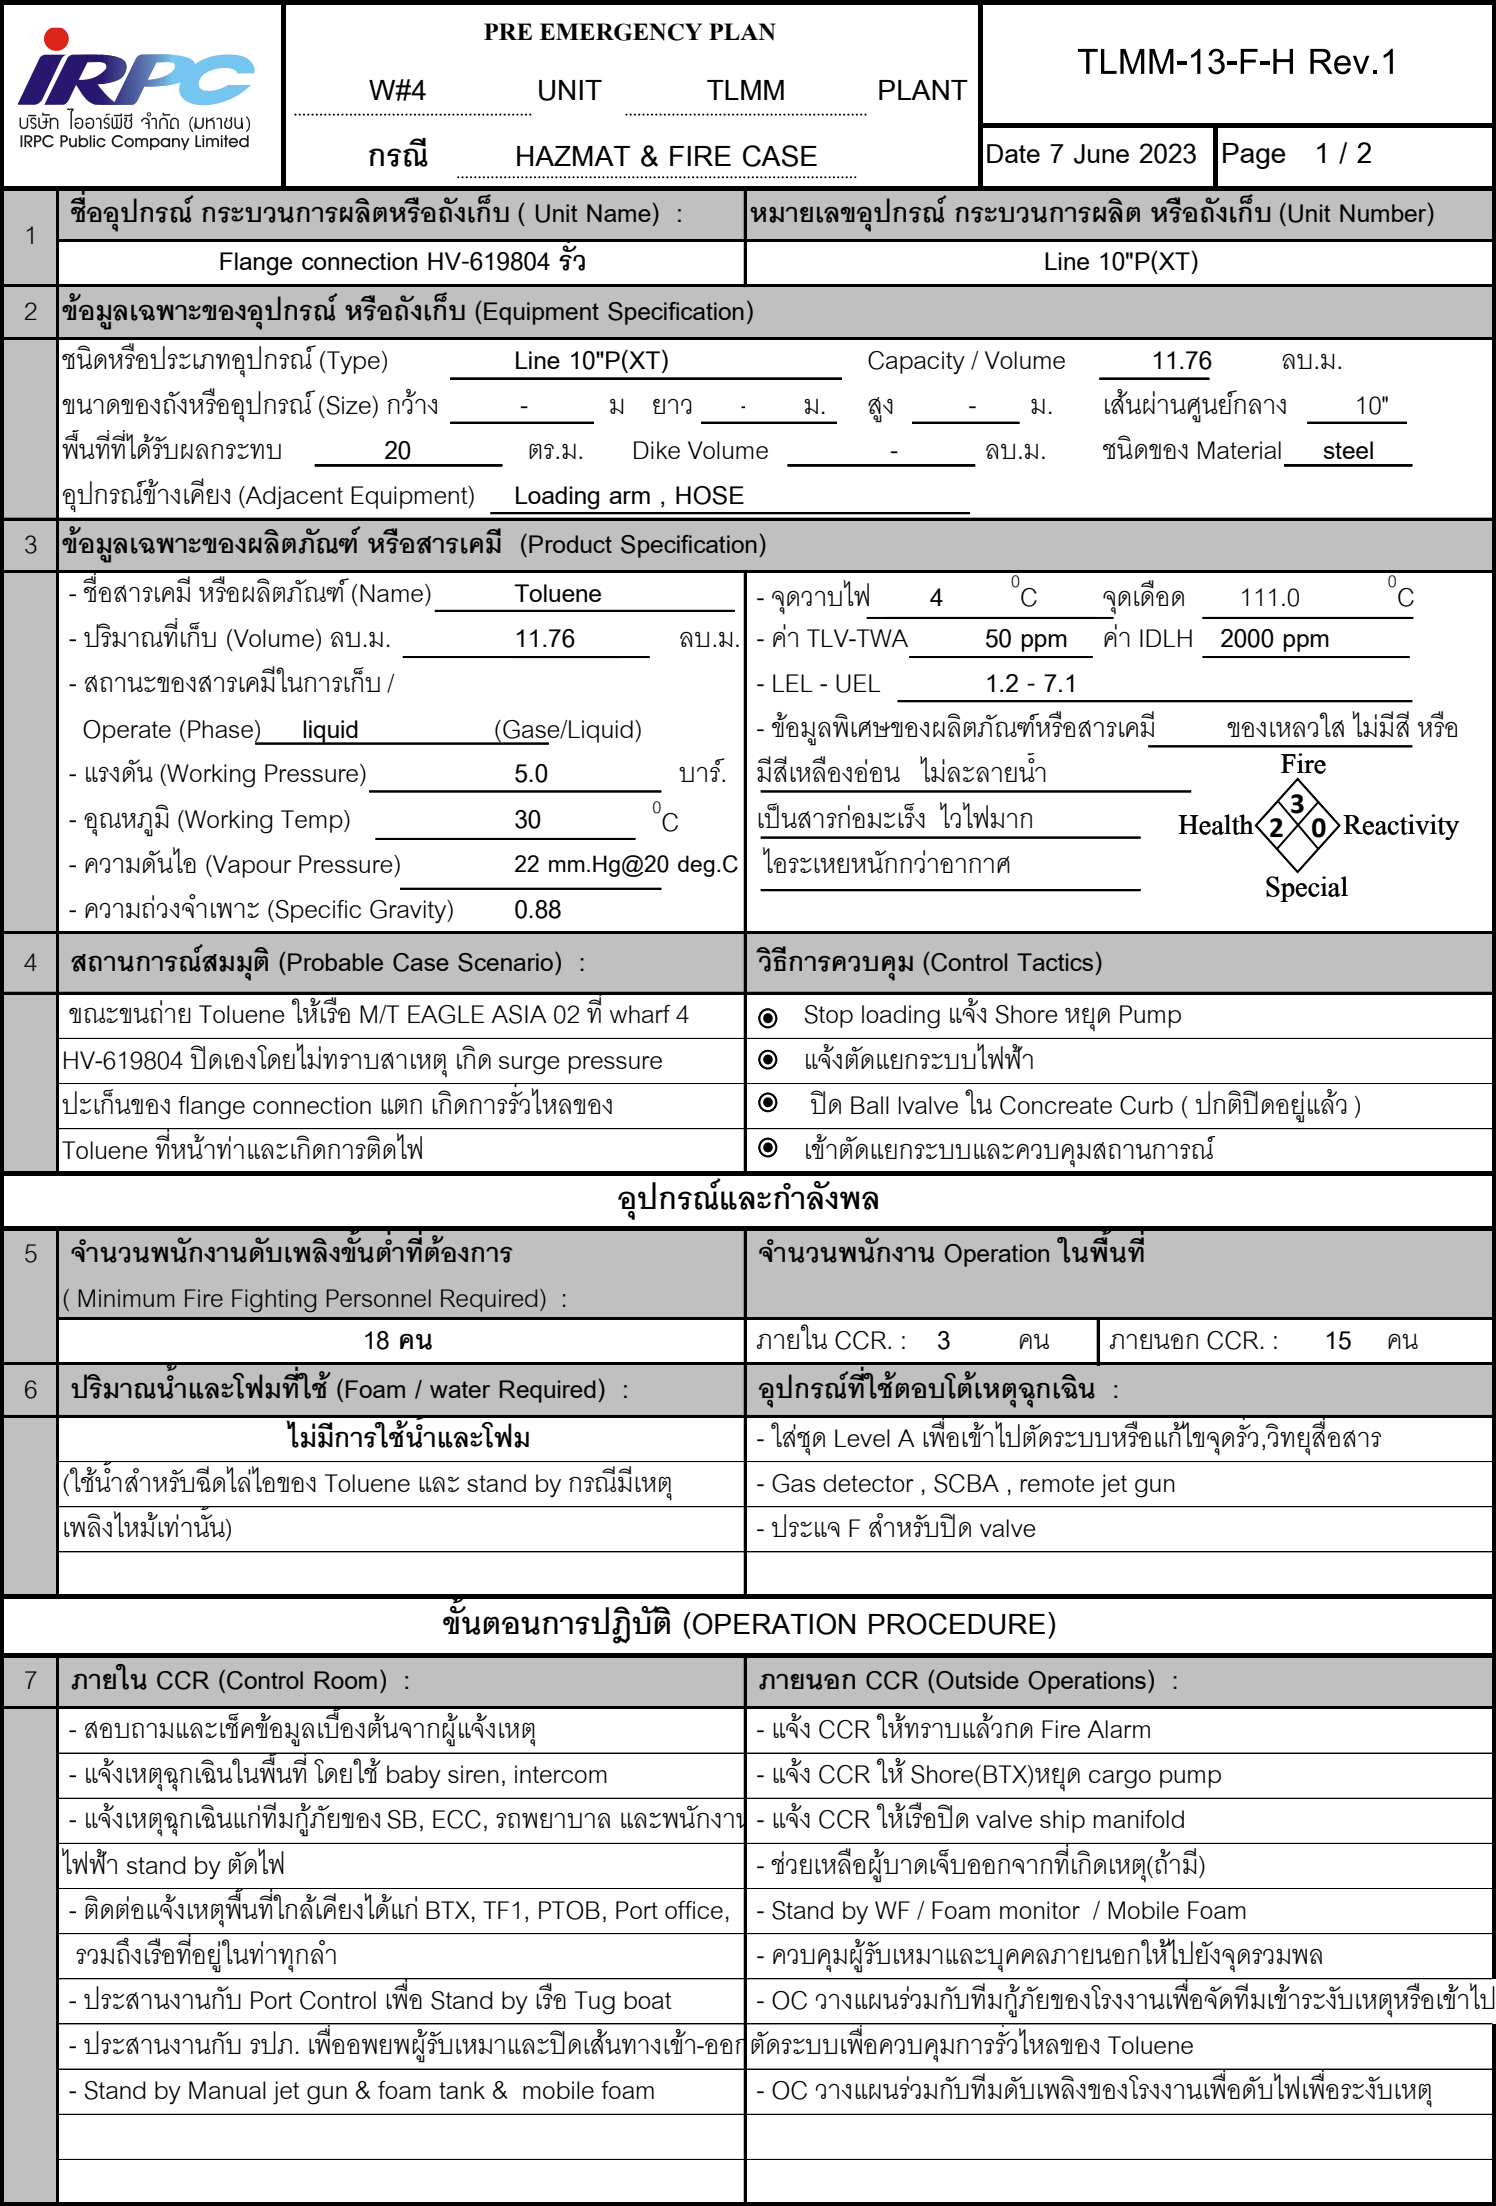 iRPC
บริษัท ไออาร์พีซี จำกัด (มหาชน)
IRPC Public Company Limited
PRE EMERGENCY PLAN
W#4 UNIT TLMM PLANT
กรณี HAZMAT & FIRE CASE
TLMM-13-F-H Rev.1
Date 7 June 2023 Page 1 / 2
1 ชื่ออุปกรณ์ กระบวนการผลิตหรือถังเก็บ ( Unit Name) : หมายเลขอุปกรณ์ กระบวนการผลิต หรือถังเก็บ (Unit Number)
Flange connection HV-619804 รั่ว Line 10"P(XT)
2 ข้อมูลเฉพาะของอุปกรณ์ หรือถังเก็บ (Equipment Specification)
ชนิดหรือประเภทอุปกรณ์ (Type) Line 10"P(XT) Capacity / Volume 11.76 ลบ.ม.
ขนาดของถังหรืออุปกรณ์ (Size) กว้าง - ม ยาว - ม. สูง - ม. เส้นผ่านศูนย์กลาง 10"
พื้นที่ที่ได้รับผลกระทบ 20 ตร.ม. Dike Volume - ลบ.ม. ชนิดของ Material steel
อุปกรณ์ข้างเคียง (Adjacent Equipment) Loading arm , HOSE
3 ข้อมูลเฉพาะของผลิตภัณฑ์ หรือสารเคมี (Product Specification)
- ชื่อสารเคมี หรือผลิตภัณฑ์ (Name) Toluene
- ปริมาณที่เก็บ (Volume) ลบ.ม. 11.76 ลบ.ม.
- สถานะของสารเคมีในการเก็บ /
Operate (Phase) liquid (Gase/Liquid)
- แรงดัน (Working Pressure) 5.0 บาร์.
- อุณหภูมิ (Working Temp) 30 0C
- ความดันไอ (Vapour Pressure) 22 mm.Hg@20 deg.C
- ความถ่วงจำเพาะ (Specific Gravity) 0.88
- จุดวาบไฟ 4 0C จุดเดือด 111.0 0C
- ค่า TLV-TWA 50 ppm ค่า IDLH 2000 ppm
- LEL - UEL 1.2 - 7.1
- ข้อมูลพิเศษของผลิตภัณฑ์หรือสารเคมี ของเหลวใส ไม่มีสี หรือ
มีสีเหลืองอ่อน ไม่ละลายน้ำ
เป็นสารก่อมะเร็ง ไวไฟมาก
ไอระเหยหนักกว่าอากาศ
Fire
3
Health 2 0 Reactivity
Special
4 สถานการณ์สมมุติ (Probable Case Scenario) : วิธีการควบคุม (Control Tactics)
ขณะขนถ่าย Toluene ให้เรือ M/T EAGLE ASIA 02 ที่ wharf 4
HV-619804 ปิดเองโดยไม่ทราบสาเหตุ เกิด surge pressure
ปะเก็นของ flange connection แตก เกิดการรั่วไหลของ
Toluene ที่หน้าท่าและเกิดการติดไฟ
Stop loading แจ้ง Shore หยุด Pump
แจ้งตัดแยกระบบไฟฟ้า
ปิด Ball lvalve ใน Concreate Curb ( ปกติปิดอยู่แล้ว )
เข้าตัดแยกระบบและควบคุมสถานการณ์
อุปกรณ์และกำลังพล
5 จำนวนพนักงานดับเพลิงขั้นต่ำที่ต้องการ จำนวนพนักงาน Operation ในพื้นที่
( Minimum Fire Fighting Personnel Required) :
18 คน ภายใน CCR. : 3 คน ภายนอก CCR. : 15 คน
6 ปริมาณน้ำและโฟมที่ใช้ (Foam / water Required) : อุปกรณ์ที่ใช้ตอบโต้เหตุฉุกเฉิน :
ไม่มีการใช้น้ำและโฟม
(ใช้น้ำสำหรับฉีดไล่ไอของ Toluene และ stand by กรณีมีเหตุ
เพลิงไหม้เท่านั้น)
- ใส่ชุด Level A เพื่อเข้าไปตัดระบบหรือแก้ไขจุดรั่ว,วิทยุสื่อสาร
- Gas detector , SCBA , remote jet gun
- ประแจ F สำหรับปิด valve
ขั้นตอนการปฎิบัติ (OPERATION PROCEDURE)
7 ภายใน CCR (Control Room) : ภายนอก CCR (Outside Operations) :
- สอบถามและเช็คข้อมูลเบื้องต้นจากผู้แจ้งเหตุ
- แจ้งเหตุฉุกเฉินในพื้นที่ โดยใช้ baby siren, intercom
- แจ้งเหตุฉุกเฉินแก่ทีมกู้ภัยของ SB, ECC, รถพยาบาล และพนักงาน
ไฟฟ้า stand by ตัดไฟ
- ติดต่อแจ้งเหตุพื้นที่ใกล้เคียงได้แก่ BTX, TF1, PTOB, Port office,
รวมถึงเรือที่อยู่ในท่าทุกลำ
- ประสานงานกับ Port Control เพื่อ Stand by เรือ Tug boat
- ประสานงานกับ รปภ. เพื่ออพยพผู้รับเหมาและปิดเส้นทางเข้า-ออก
- Stand by Manual jet gun & foam tank & mobile foam
- แจ้ง CCR ให้ทราบแล้วกด Fire Alarm
- แจ้ง CCR ให้ Shore(BTX)หยุด cargo pump
- แจ้ง CCR ให้เรือปิด valve ship manifold
- ช่วยเหลือผู้บาดเจ็บออกจากที่เกิดเหตุ(ถ้ามี)
- Stand by WF / Foam monitor / Mobile Foam
- ควบคุมผู้รับเหมาและบุคคลภายนอกให้ไปยังจุดรวมพล
- OC วางแผนร่วมกับทีมกู้ภัยของโรงงานเพื่อจัดทีมเข้าระงับเหตุหรือเข้าไป
ตัดระบบเพื่อควบคุมการรั่วไหลของ Toluene
- OC วางแผนร่วมกับทีมดับเพลิงของโรงงานเพื่อดับไฟเพื่อระงับเหตุ